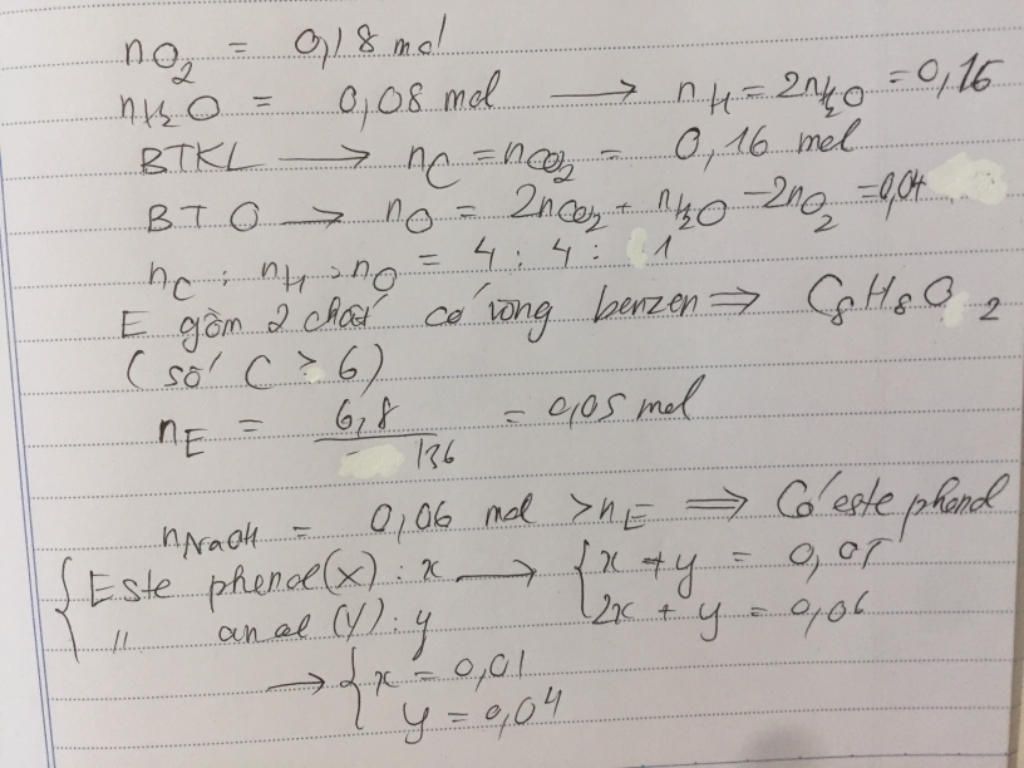 nO2 = 0,18 mol
nH2O = 0,08 mol → nH = 2nH2O = 0,16
BTKL → nC = nCO2 = 0,16 mol
BT O → nO = 2nCO2 + nH2O - 2nO2 = 0,04
nC : nH : nO = 4 : 4 : 1
E gồm 2 chất có vòng benzen ⇒ C8H8O2
(số C ≥ 6)
nE = 6,8/136 = 0,05 mol
nNaOH = 0,06 mol > nE ⇒ Có este phenol
{ Este phenol (X) : x → { x + y = 0,05
" ancol (Y) : y 2x + y = 0,06
→ { x = 0,01
y = 0,04